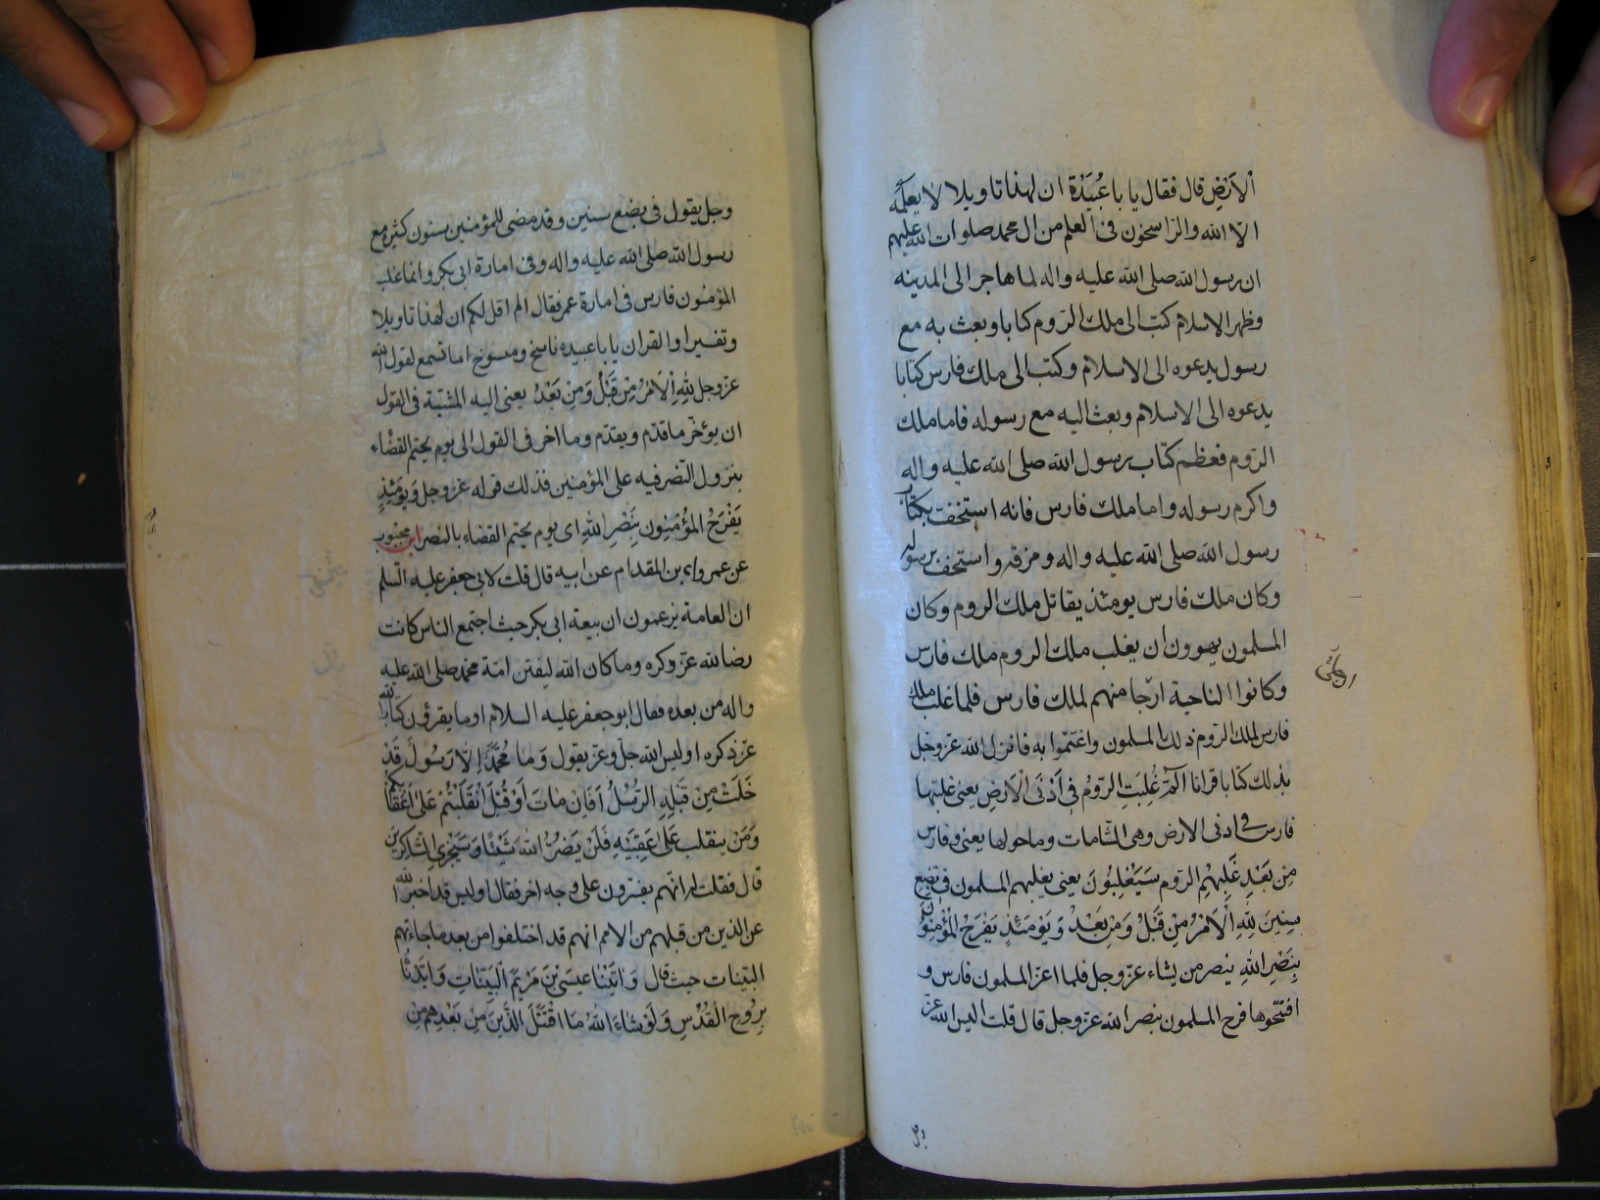 الْاَرْضِ قال فقال يا باعُبَيْدَة ان لهذا تاويلا لا يعلمه
الا الله والراسخون فى العلم من ال محمد صلوات الله عليهم
ان رسول الله صلى الله عليه واله لما هاجر الى المدينه
وظهر الاسلام كتب الى ملك الروم كتابا وبعث به مع
رسول يدعوه الى الاسلام وكتب الى ملك فارس كتابا
يدعوه الى الاسلام وبعث اليه مع رسوله فاما ملك
الروم فعظم كتاب رسول الله صلى الله عليه واله
واكرم رسوله واما ملك فارس فانه استخف بكتاب
رسول الله صلى الله عليه واله ومزقه واستخف برسوله
وكان ملك فارس يومئذ يقاتل ملك الروم وكان
المسلمون يهوون ان يغلب ملك الروم ملك فارس
وكانوا الناحية ارجا منهم لملك فارس فلما غلب ملك
فارس لملك الروم ذلك المسلمون واغتموا به فانزل الله عز وجل
بذلك كتابا قرانا الٓمٓ غُلِبَتِ الرّومُ فِى اَدْنَى الْاَرْضِ يعنى غلبتها
فارس فى ادنى الارض وهى الشامات وما حولها يعنى وفارس
مِنْ بَعْدِ غَلَبِهِمِ الروم سَيَغْلِبُونَ يعنى يغلبهم المسلمون فى بِضْعِ
سِنِينَ لِلّٰهِ الْاَمْرُ مِنْ قَبْلُ وَمِنْ بَعْدُ وَيَوْمَئِذٍ يَفْرَحُ الْمُؤْمِنُونَ
بِنَصْرِ اللّٰهِ ينصر من يشاء عز وجل فلما اغز المسلمون فارس و
افتتحوها فرح المسلمون بنصر الله عز وجل قال قلت اليس الله عز
وجل
وجل يقول فى بضع سنين وقد مضى للمؤمنين سنون كثير مع
رسول الله صلى الله عليه واله وفى امارة ابى بكر وانما غلب
المؤمنون فارس فى امارة عمر فقال الم اقل لكم ان لهذا تاويلا
وتفسيرا والقران يا باعبيده ناسخ ومنسوخ اما تسمع لقول الله
عز وجل لِلّٰهِ الْاَمْرُ مِنْ قَبْلُ وَمِنْ بَعْدُ يعنى اليه المشية فى القول
ان يؤخر ما قدم ويقدم وما اخر فى القول الى يوم يحتم القضاء
بنزول النصر فيه على المؤمنين فذلك قوله عز وجل وَيَوْمَئِذٍ
يَفْرَحُ الْمُؤْمِنُونَ بِنَصْرِ اللّٰهِ اى يوم يحتم القضاء بالنصر ابن محبوب
عن عمرو بن المقدام عن ابيه قال قلت لابى جعفر عليه السلم
ان العامة يزعمون ان بيعة ابى بكر حيث اجتمع الناس كانت
رضا لله عز وكره وما كان الله ليفتن امة محمد صلى الله عليه
واله من بعده فقال ابو جعفر عليه السلام اوما يقرؤن كتاب الله
عز ذكره اوليس الله جل وعز يقول وَمَا مُحَمَّدٌ اِلَّا رَسُولٌ قَدْ
خَلَتْ مِنْ قَبْلِهِ الرُّسُلُ اَفَاِنْ مَاتَ اَوْ قُتِلَ انْقَلَبْتُمْ عَلٰى اَعْقَابِكُمْ
وَمَنْ ينقلب عَلٰى عَقِبَيْهِ فَلَنْ يَضُرَّ اللّٰهَ شَيْئًا وَسَيَجْزِى الشاكرين
قال فقلت له انهم يفسرون على وجه اخر فقال اوليس قد اخبر الله
عن الذين من قبلهم من الامم انهم قد اختلفوا من بعد ما جاءتهم
البينات حيث قال وَاٰتَيْنَا عيسَى بْنَ مَرْيَمَ الْبَيِّنَاتِ وَاَيَّدْنَاهُ
بِرُوحِ الْقُدُسِ وَلَوْ شَاءَ اللّٰهُ مَا اقْتَتَلَ الَّذِينَ مِنْ بَعْدِهِمْ مِنْ